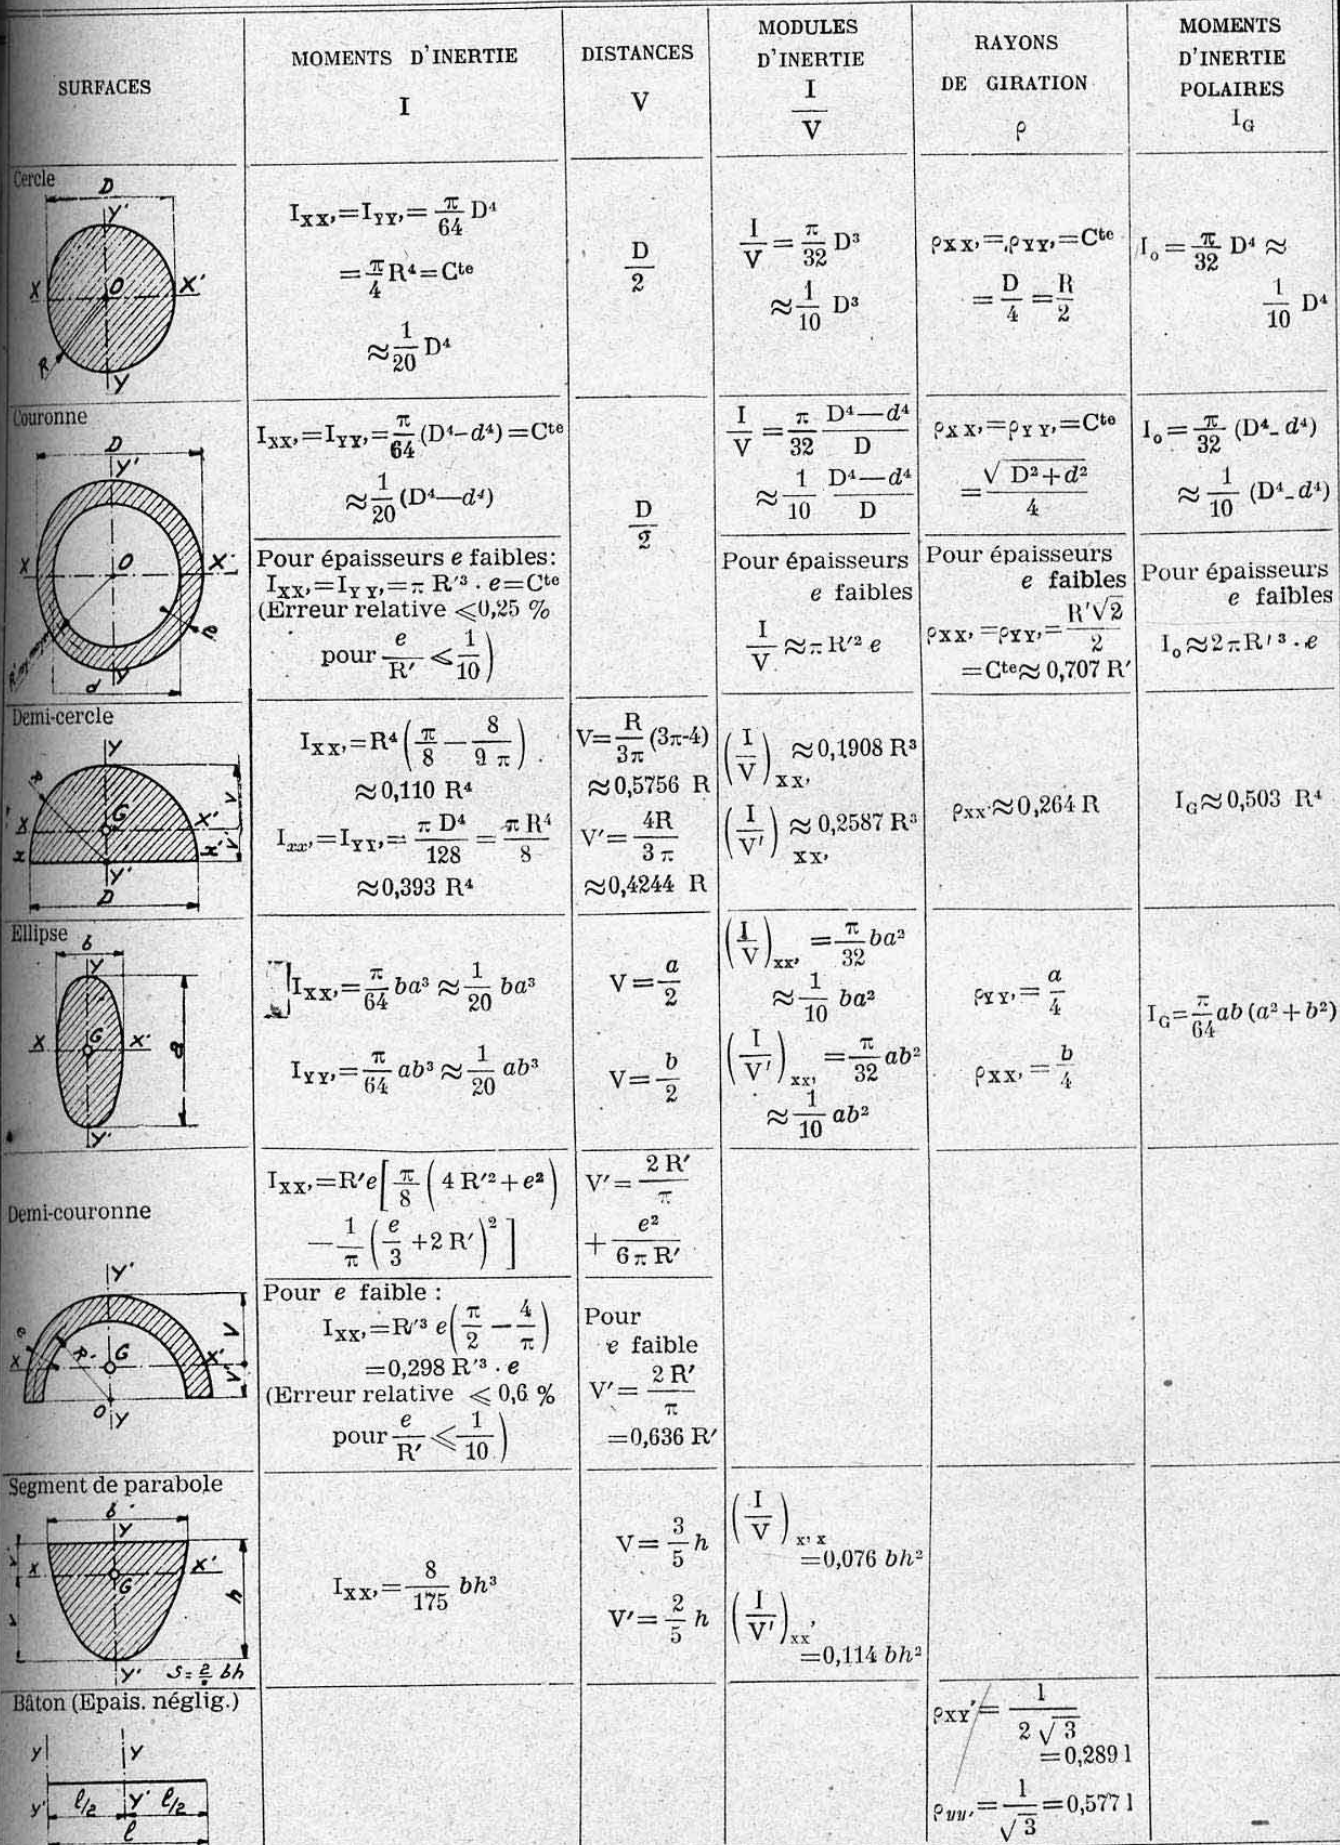 SURFACES
MOMENTS D'INERTIE
I
DISTANCES
V
MODULES
D'INERTIE
I
V
RAYONS
DE GIRATION
ρ
MOMENTS
D'INERTIE
POLAIRES
I_G
Cercle
D
Y'
X O X'
R
Y
I_XX'=I_YY'= π/64 D⁴
= π/4 R⁴=Cᵗᵉ
≈ 1/20 D⁴
D/2
I/V = π/32 D³
≈ 1/10 D³
ρ_XX'=ρ_YY'=Cᵗᵉ
= D/4 = R/2
I_o= π/32 D⁴ ≈
1/10 D⁴
Couronne
D
Y'
X O X'
e
Y
d
I_XX'=I_YY'= π/64 (D⁴-d⁴)=Cᵗᵉ
≈ 1/20 (D⁴—d⁴)
Pour épaisseurs e faibles:
I_XX'=I_YY'=π R'³ . e=Cᵗᵉ
(Erreur relative ⩽0,25 %
pour e/R' ⩽ 1/10)
D/2
I/V = π/32 D⁴—d⁴/D
≈ 1/10 D⁴—d⁴/D
Pour épaisseurs
e faibles
I/V ≈ π R'² e
ρ_XX'=ρ_YY'=Cᵗᵉ
= √D²+d²/4
Pour épaisseurs
e faibles
ρ_XX'=ρ_YY'= R'√2/2
=Cᵗᵉ≈ 0,707 R'
I_o= π/32 (D⁴-d⁴)
≈ 1/10 (D⁴-d⁴)
Pour épaisseurs
e faibles
I_o≈2πR'³.e
Demi-cercle
Y
R
G
X X' V
x x' V'
Y'
D
I_XX'=R⁴(π/8 — 8/9 π)
≈0,110 R⁴
I_xx'=I_YY'= π D⁴/128 = π R⁴/8
≈0,393 R⁴
V= R/3π (3π-4)
≈0,5756 R
V'= 4R/3 π
≈0,4244 R
(I/V)_XX' ≈0,1908 R³
(I/V')_XX' ≈ 0,2587 R³
ρ_XX'≈0,264 R
I_G≈0,503 R⁴
Ellipse
b
Y
X G X' a
Y'
I_XX'= π/64 ba³ ≈ 1/20 ba³
I_YY'= π/64 ab³ ≈ 1/20 ab³
V= a/2
V= b/2
(I/V)_XX' = π/32 ba²
≈ 1/10 ba²
(I/V')_XX' = π/32 ab²
≈ 1/10 ab²
ρ_YY'= a/4
ρ_XX'= b/4
I_G= π/64 ab (a²+b²)
Demi-couronne
Y'
e V
X R' G X' V'
O Y
I_XX'=R'e[π/8 (4 R'²+e²)
— 1/π (e/3 +2 R')² ]
Pour e faible :
I_XX'=R'³ e(π/2 — 4/π)
=0,298 R'³ . e
(Erreur relative ⩽ 0,6 %
pour e/R' ⩽ 1/10)
V'= 2 R'/π
+ e²/6 π R'
Pour
e faible
V'= 2 R'/π
=0,636 R'
Segment de parabole
b
Y
X G X' h
Y'
bh
I_XX'= 8/175 bh³
V= 3/5 h
V'= 2/5 h
(I/V)_X'X
=0,076 bh²
(I/V')_XX'
=0,114 bh²
Bâton (Epais. néglig.)
y Y
y' l/2 Y' l/2
l
ρ_XY'= 1/2 √3
=0,289 l
ρ_yy'= 1/√3 =0,577 l